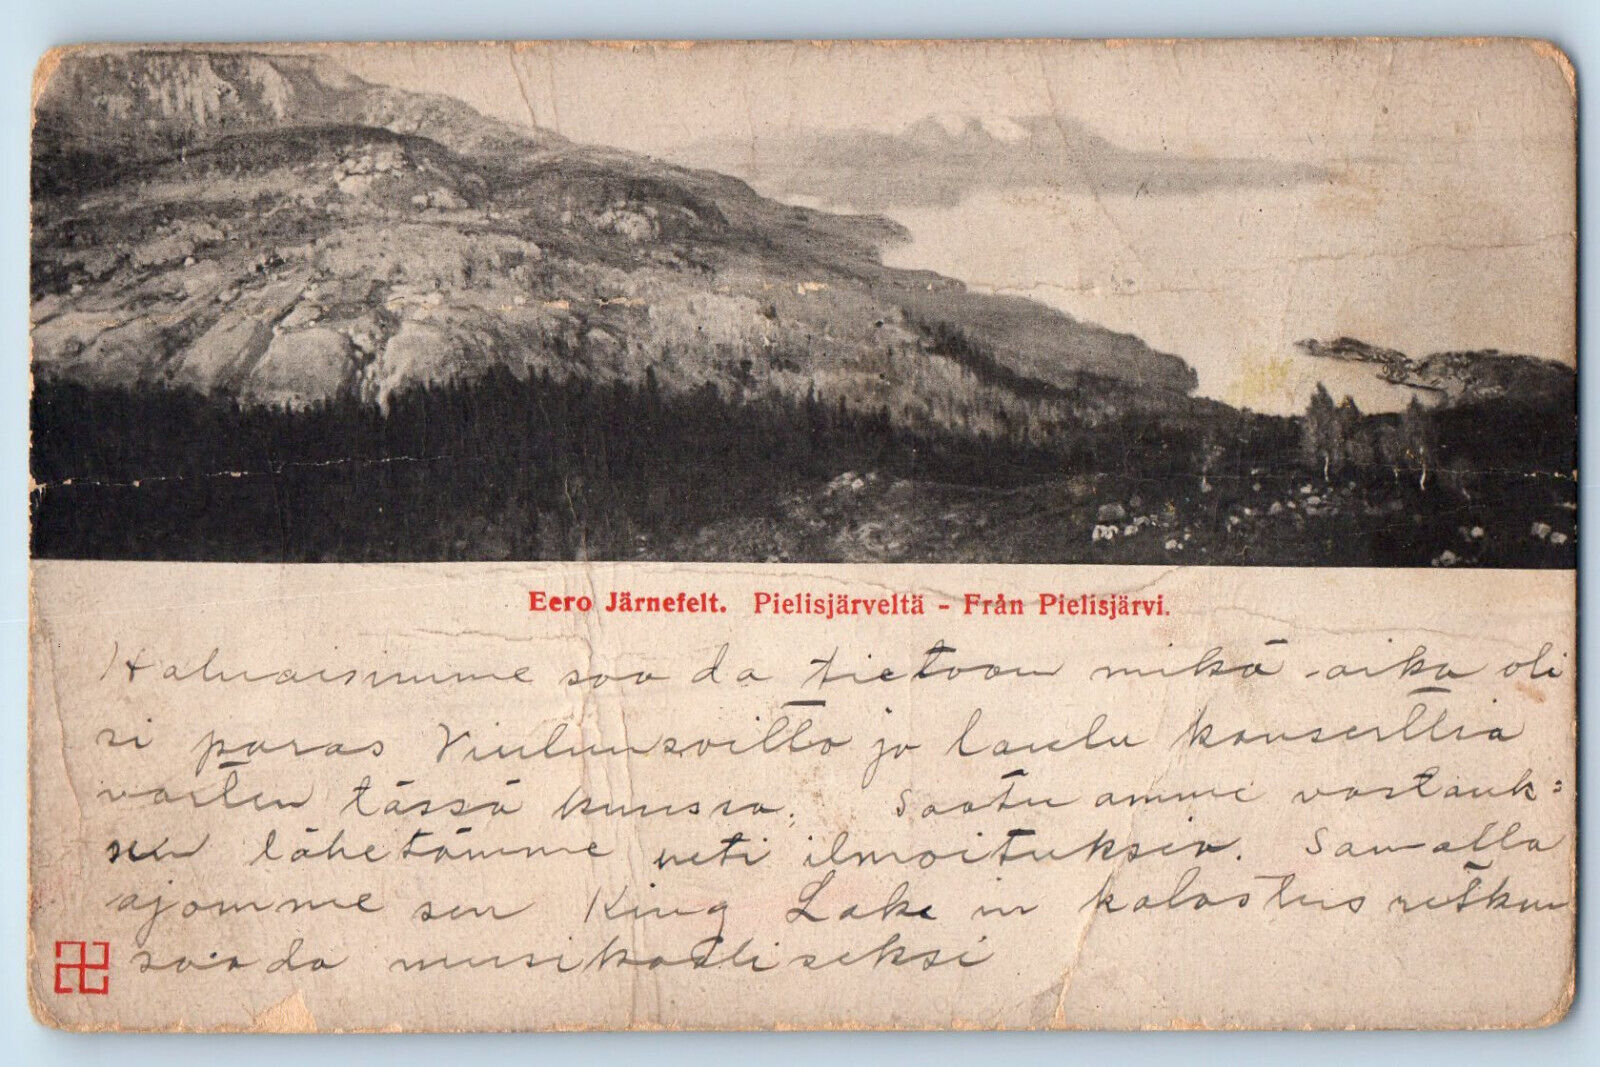 Eero Järnefelt. Pielisjärveltä - Från Pielisjärvi.
Haluaisimme saada tietoon mikä -aika oli
si paras Viulunsoitto ja laulu konserttia
varten tässä kuussa. Saatuamme vastauk=
sen lähetämme heti ilmoituksia. Samalla
ajamme sen King Lake in kalastus retken
saada musikaaliseksi